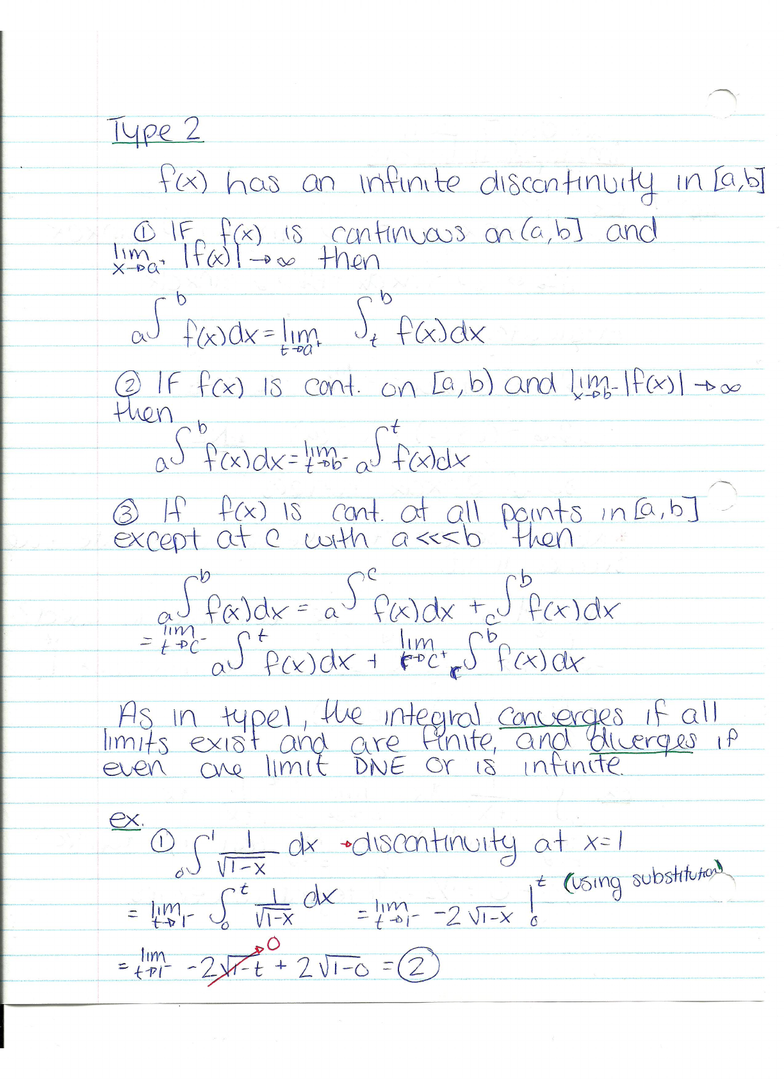 Type 2
f(x) has an infinite discontinuity in [a,b]
① IF f(x) is continuous on (a,b] and
lim x→a⁺ |f(x)| → ∞ then
a∫^b f(x)dx = lim t→a⁺ ∫_t^b f(x)dx
② IF f(x) is cont. on [a,b) and lim x→b⁻ |f(x)| → ∞
then
a∫^b f(x)dx = lim t→b⁻ a∫^t f(x)dx
③ If f(x) is cont. at all points in [a,b]
except at c with a<c<b then
a∫^b f(x)dx = a∫^c f(x)dx + c∫^b f(x)dx
= lim t→c⁻ a∫^t f(x)dx + lim t→c⁺ t∫^b f(x)dx
As in type1, the integral converges if all
limits exist and are finite, and diverges if
even one limit DNE or is infinite.
ex.
① 0∫^1 1/√(1-x) dx → discontinuity at x=1
= lim t→1⁻ ∫_0^t 1/√(1-x) dx = lim t→1⁻ -2√(1-x) |_0^t (using substitution)
= lim t→1⁻ -2√(1-t) → 0 + 2√(1-0) = 2